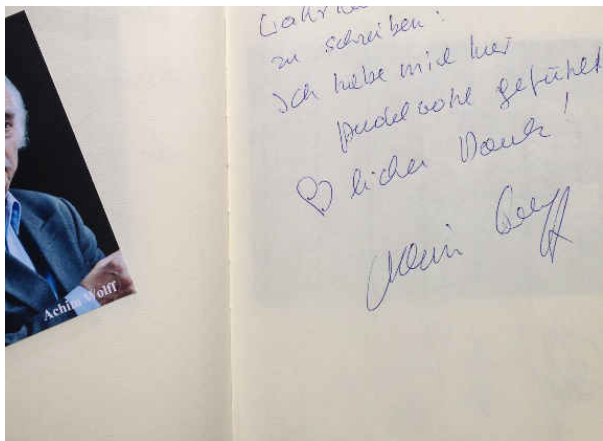 Achim Wolff
zu schreiben!
Ich habe mich hier
pudelwohl gefühlt
♡ licher Dank!
Achim Wolff